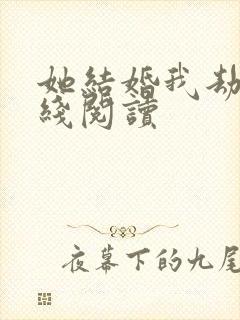 她結婚我劫
綫閱讀
夜幕下的九尾